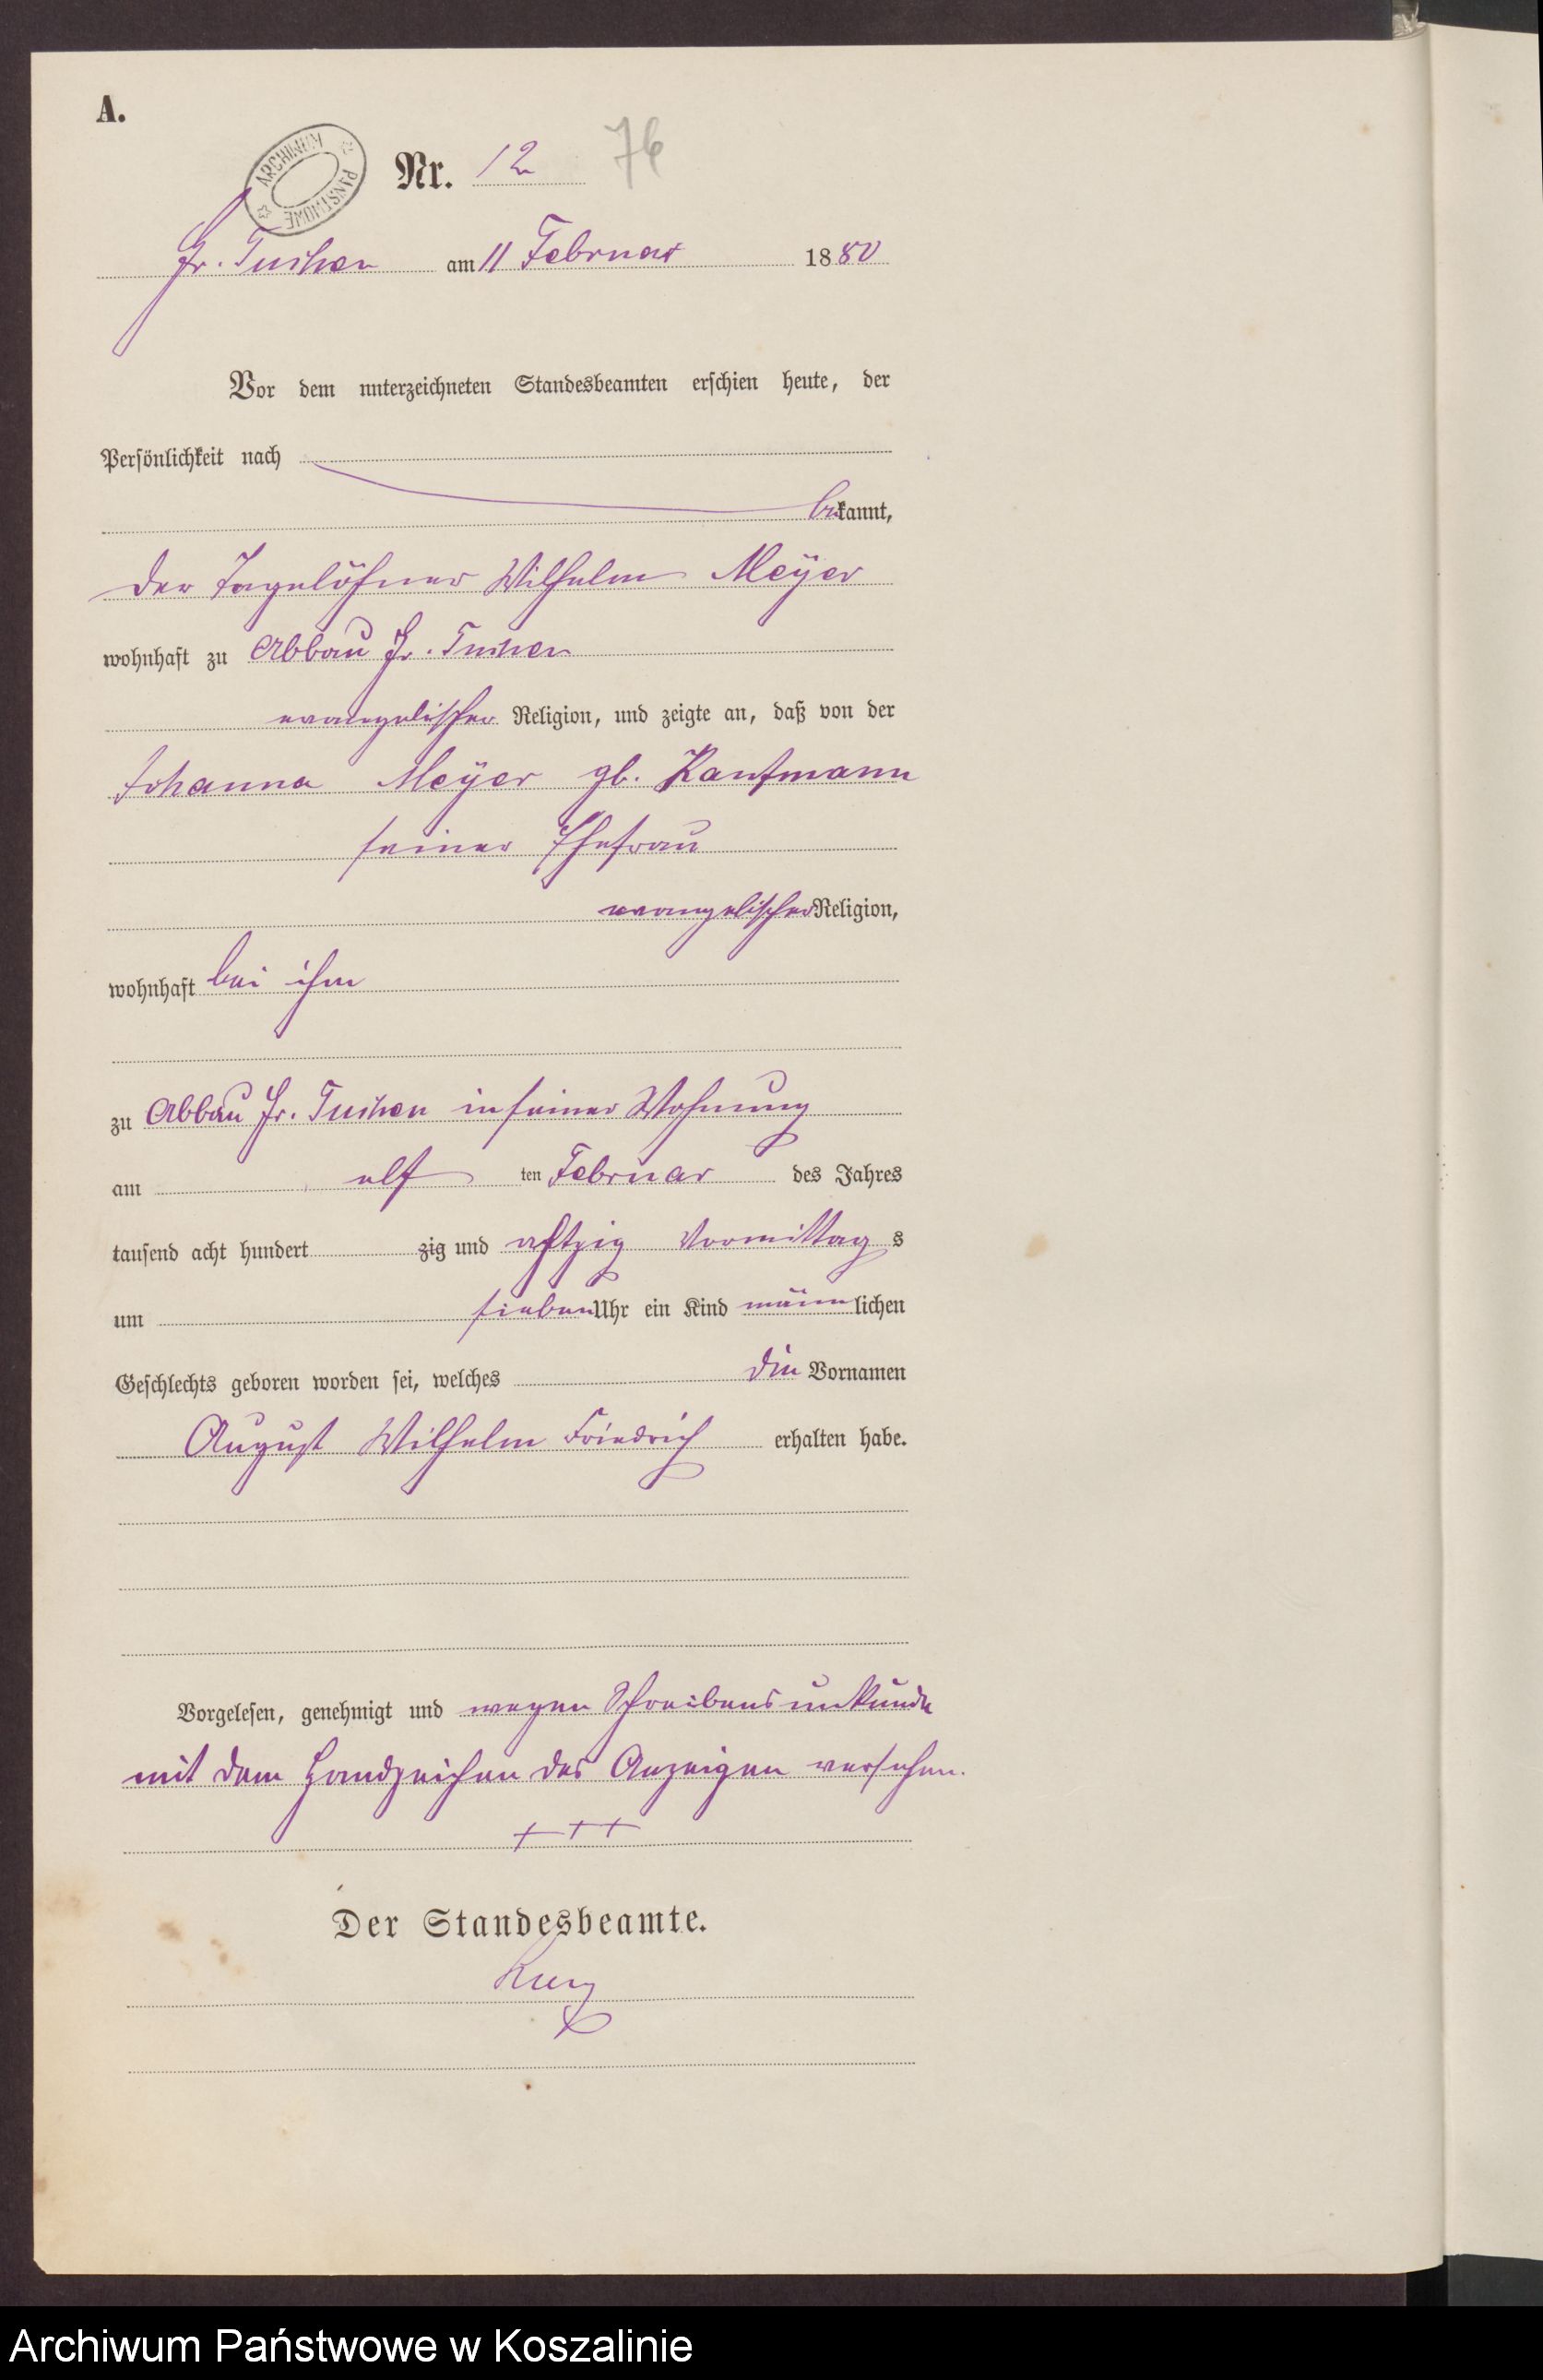 A.
ARCHIWUM PAŃSTWOWE
Nr. 12 76
Gr. Tuchen am 11 Februar 1880
Vor dem unterzeichneten Standesbeamten erschien heute, der
Persönlichkeit nach
bekannt,
der Tagelöhner Wilhelm Meÿer
wohnhaft zu Abbau Gr. Tuchen
evangelischer Religion, und zeigte an, daß von der
Johanna Meÿer gb. Kaufmann
seiner Ehefrau
evangelischer Religion,
wohnhaft bei ihm
zu Abbau Gr. Tuchen in seiner Wohnung
am elf ten Februar des Jahres
tausend acht hundert zig und achtzig Vormittag s
um sieben Uhr ein Kind männlichen
Geschlechts geboren worden sei, welches die Vornamen
August Wilhelm Friedrich erhalten habe.
Vorgelesen, genehmigt und wegen Schreibensunkunde
mit dem Handzeichen des Anzeigen versehen.
+++
Der Standesbeamte.
Archiwum Państwowe w Koszalinie